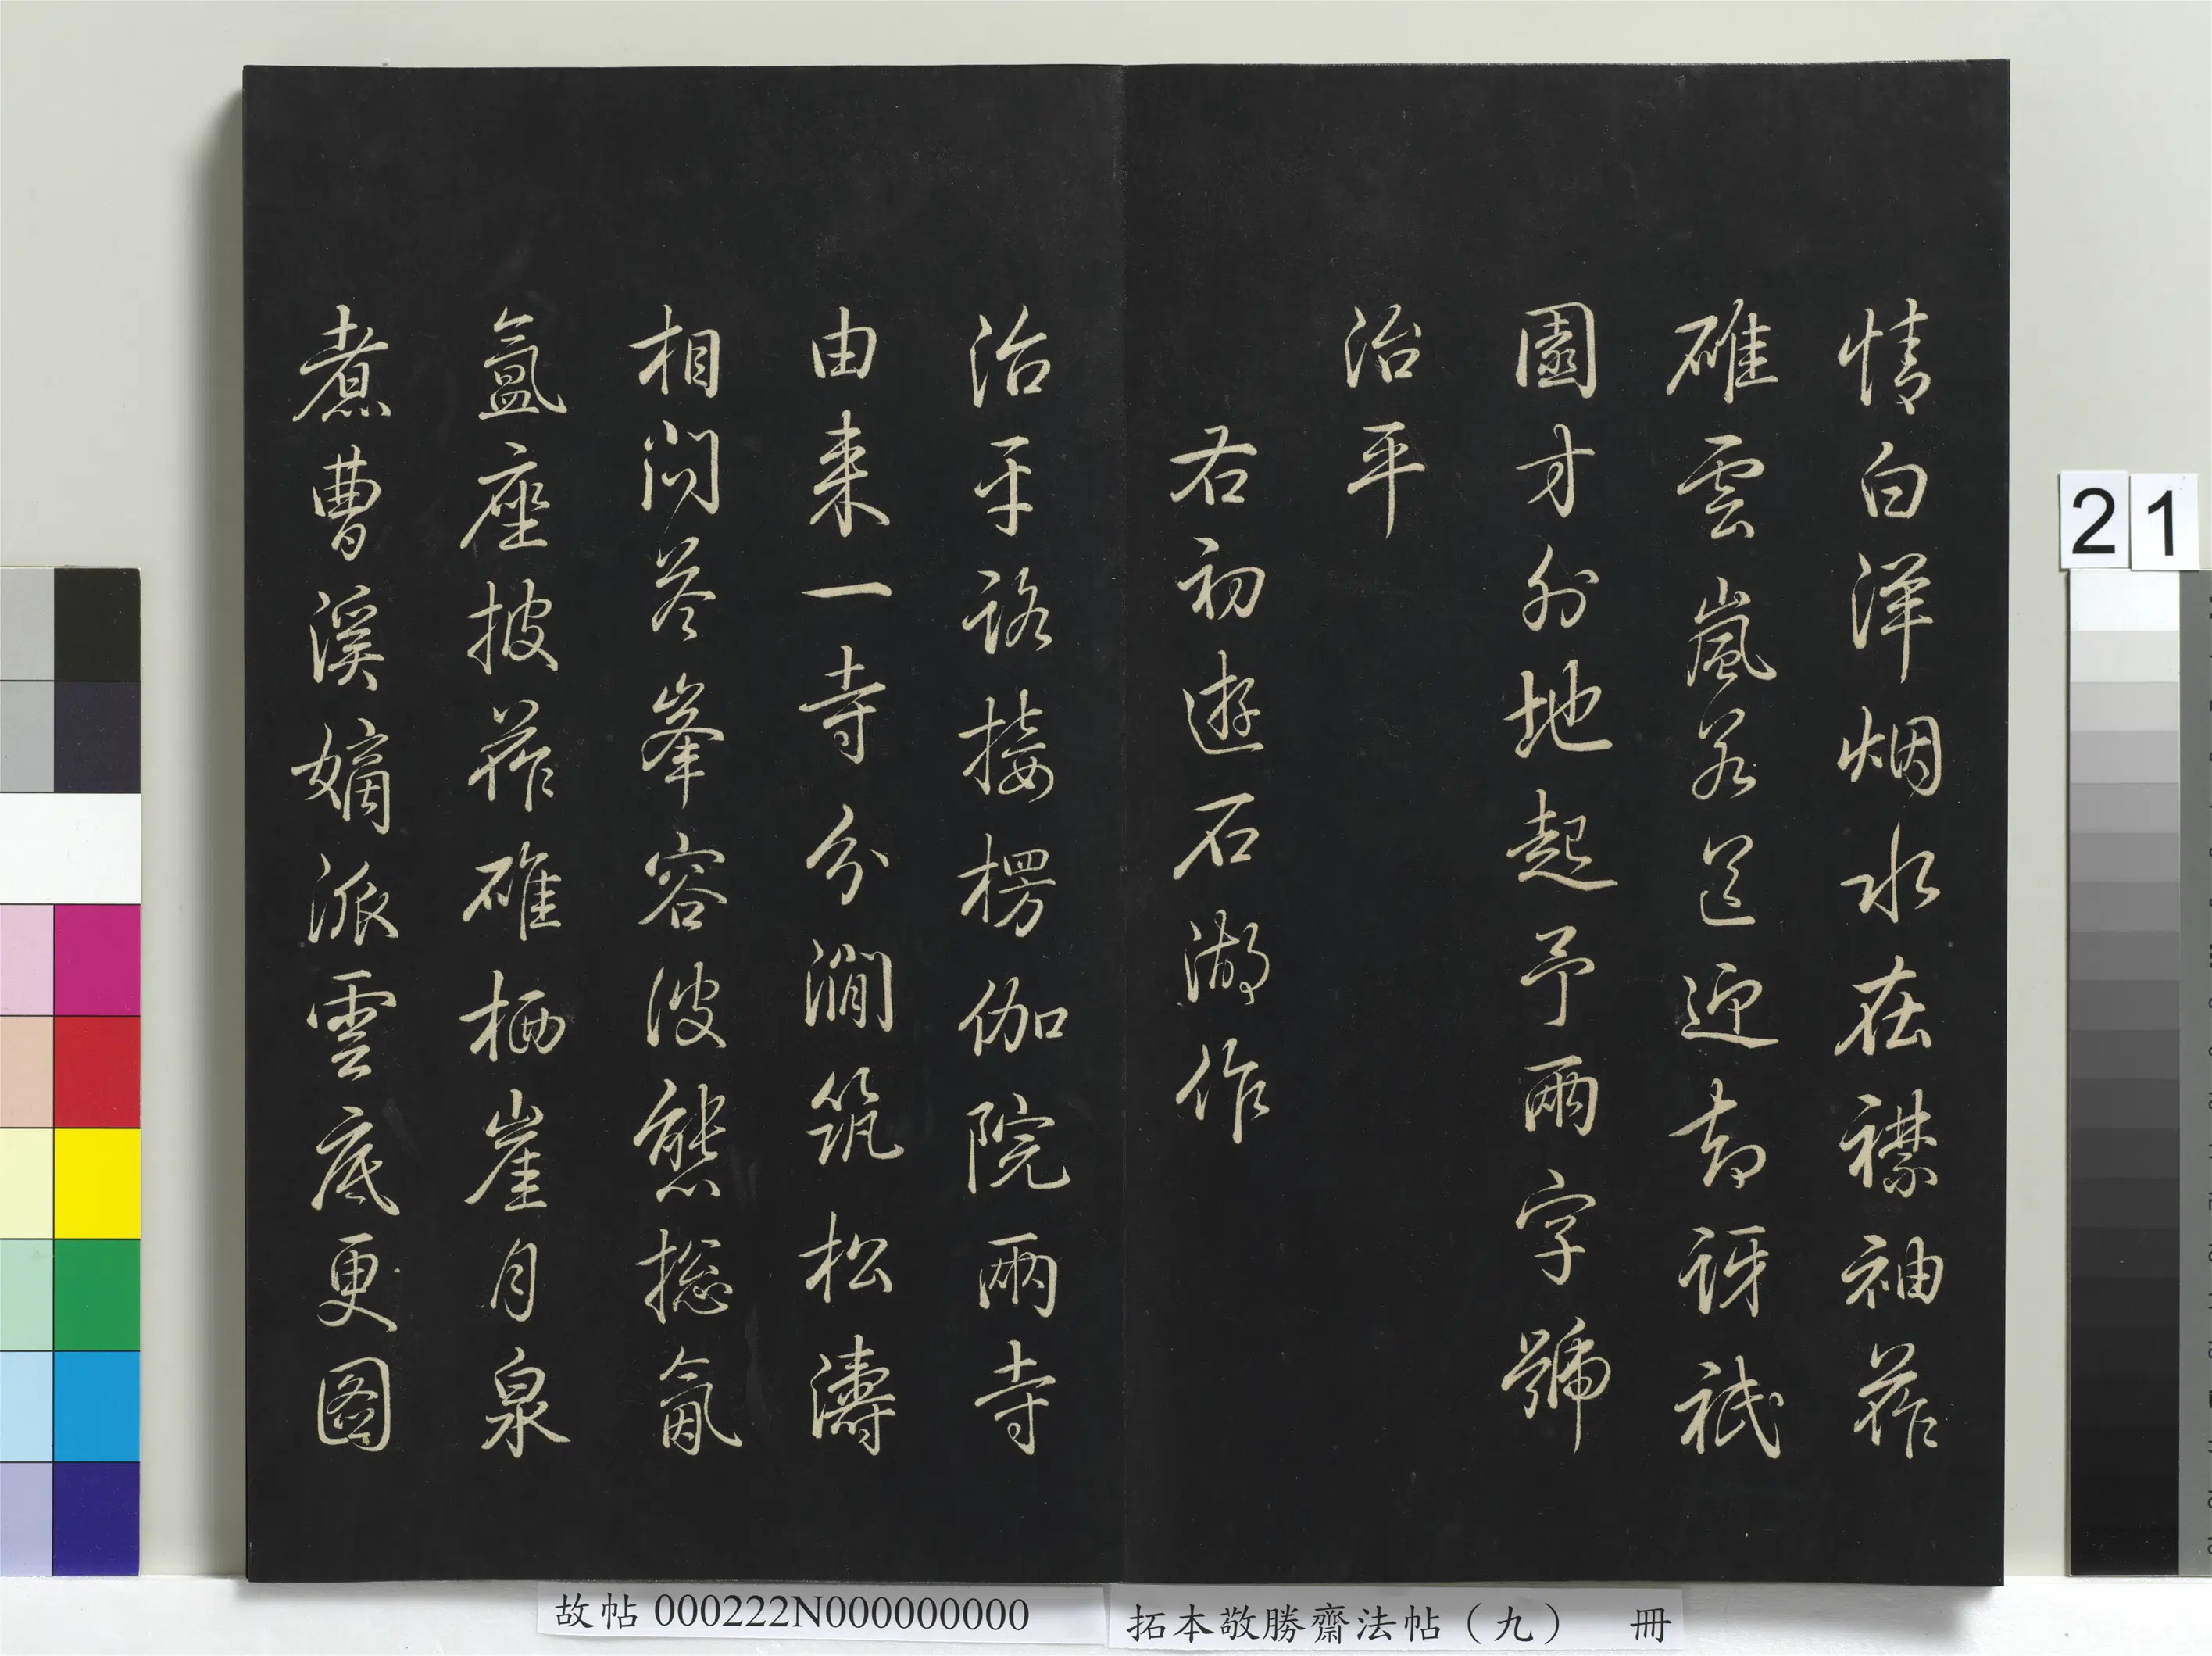 情白洋烟水在襟袖菴
碓雲嵐若送迎却訝祇
園才外地起予兩字號
治平
右初遊石湖作
治平路接楞伽院兩寺
由来一寺分澗筑松濤
相問荅峯容波態摠氤
氳座披菴碓栖崖月泉
煮曹溪嫡派雲底更圖
21
故帖 000222N000000000
拓本敬勝齋法帖（九） 冊